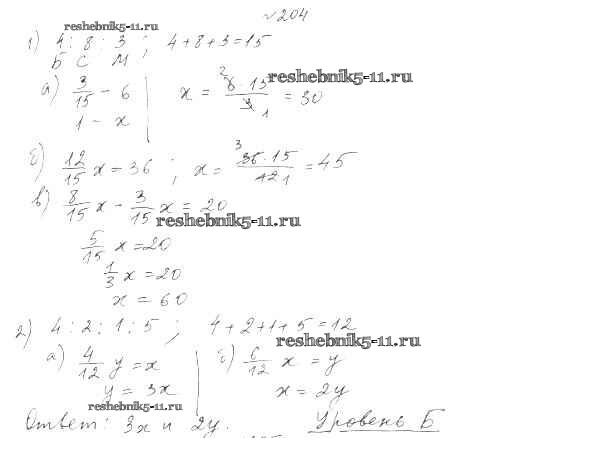 №204
reshebnik5-11.ru
1) 4 : 8 : 3 ; 4+8+3=15
Б С М
reshebnik5-11.ru
а) 3/15 - 6 | x = 6·15/3 = 30
1 - x
б) 12/15 x = 36 ; x = 36·15/12 = 45
в) 8/15 x - 3/15 x = 20
reshebnik5-11.ru
5/15 x = 20
1/3 x = 20
x = 60
2) 4 : 2 : 1 : 5 ; 4+2+1+5=12
reshebnik5-11.ru
а) 4/12 y = x | б) 6/12 x = y
y = 3x | x = 2y
reshebnik5-11.ru
Ответ: 3x и 2y. Уровень Б